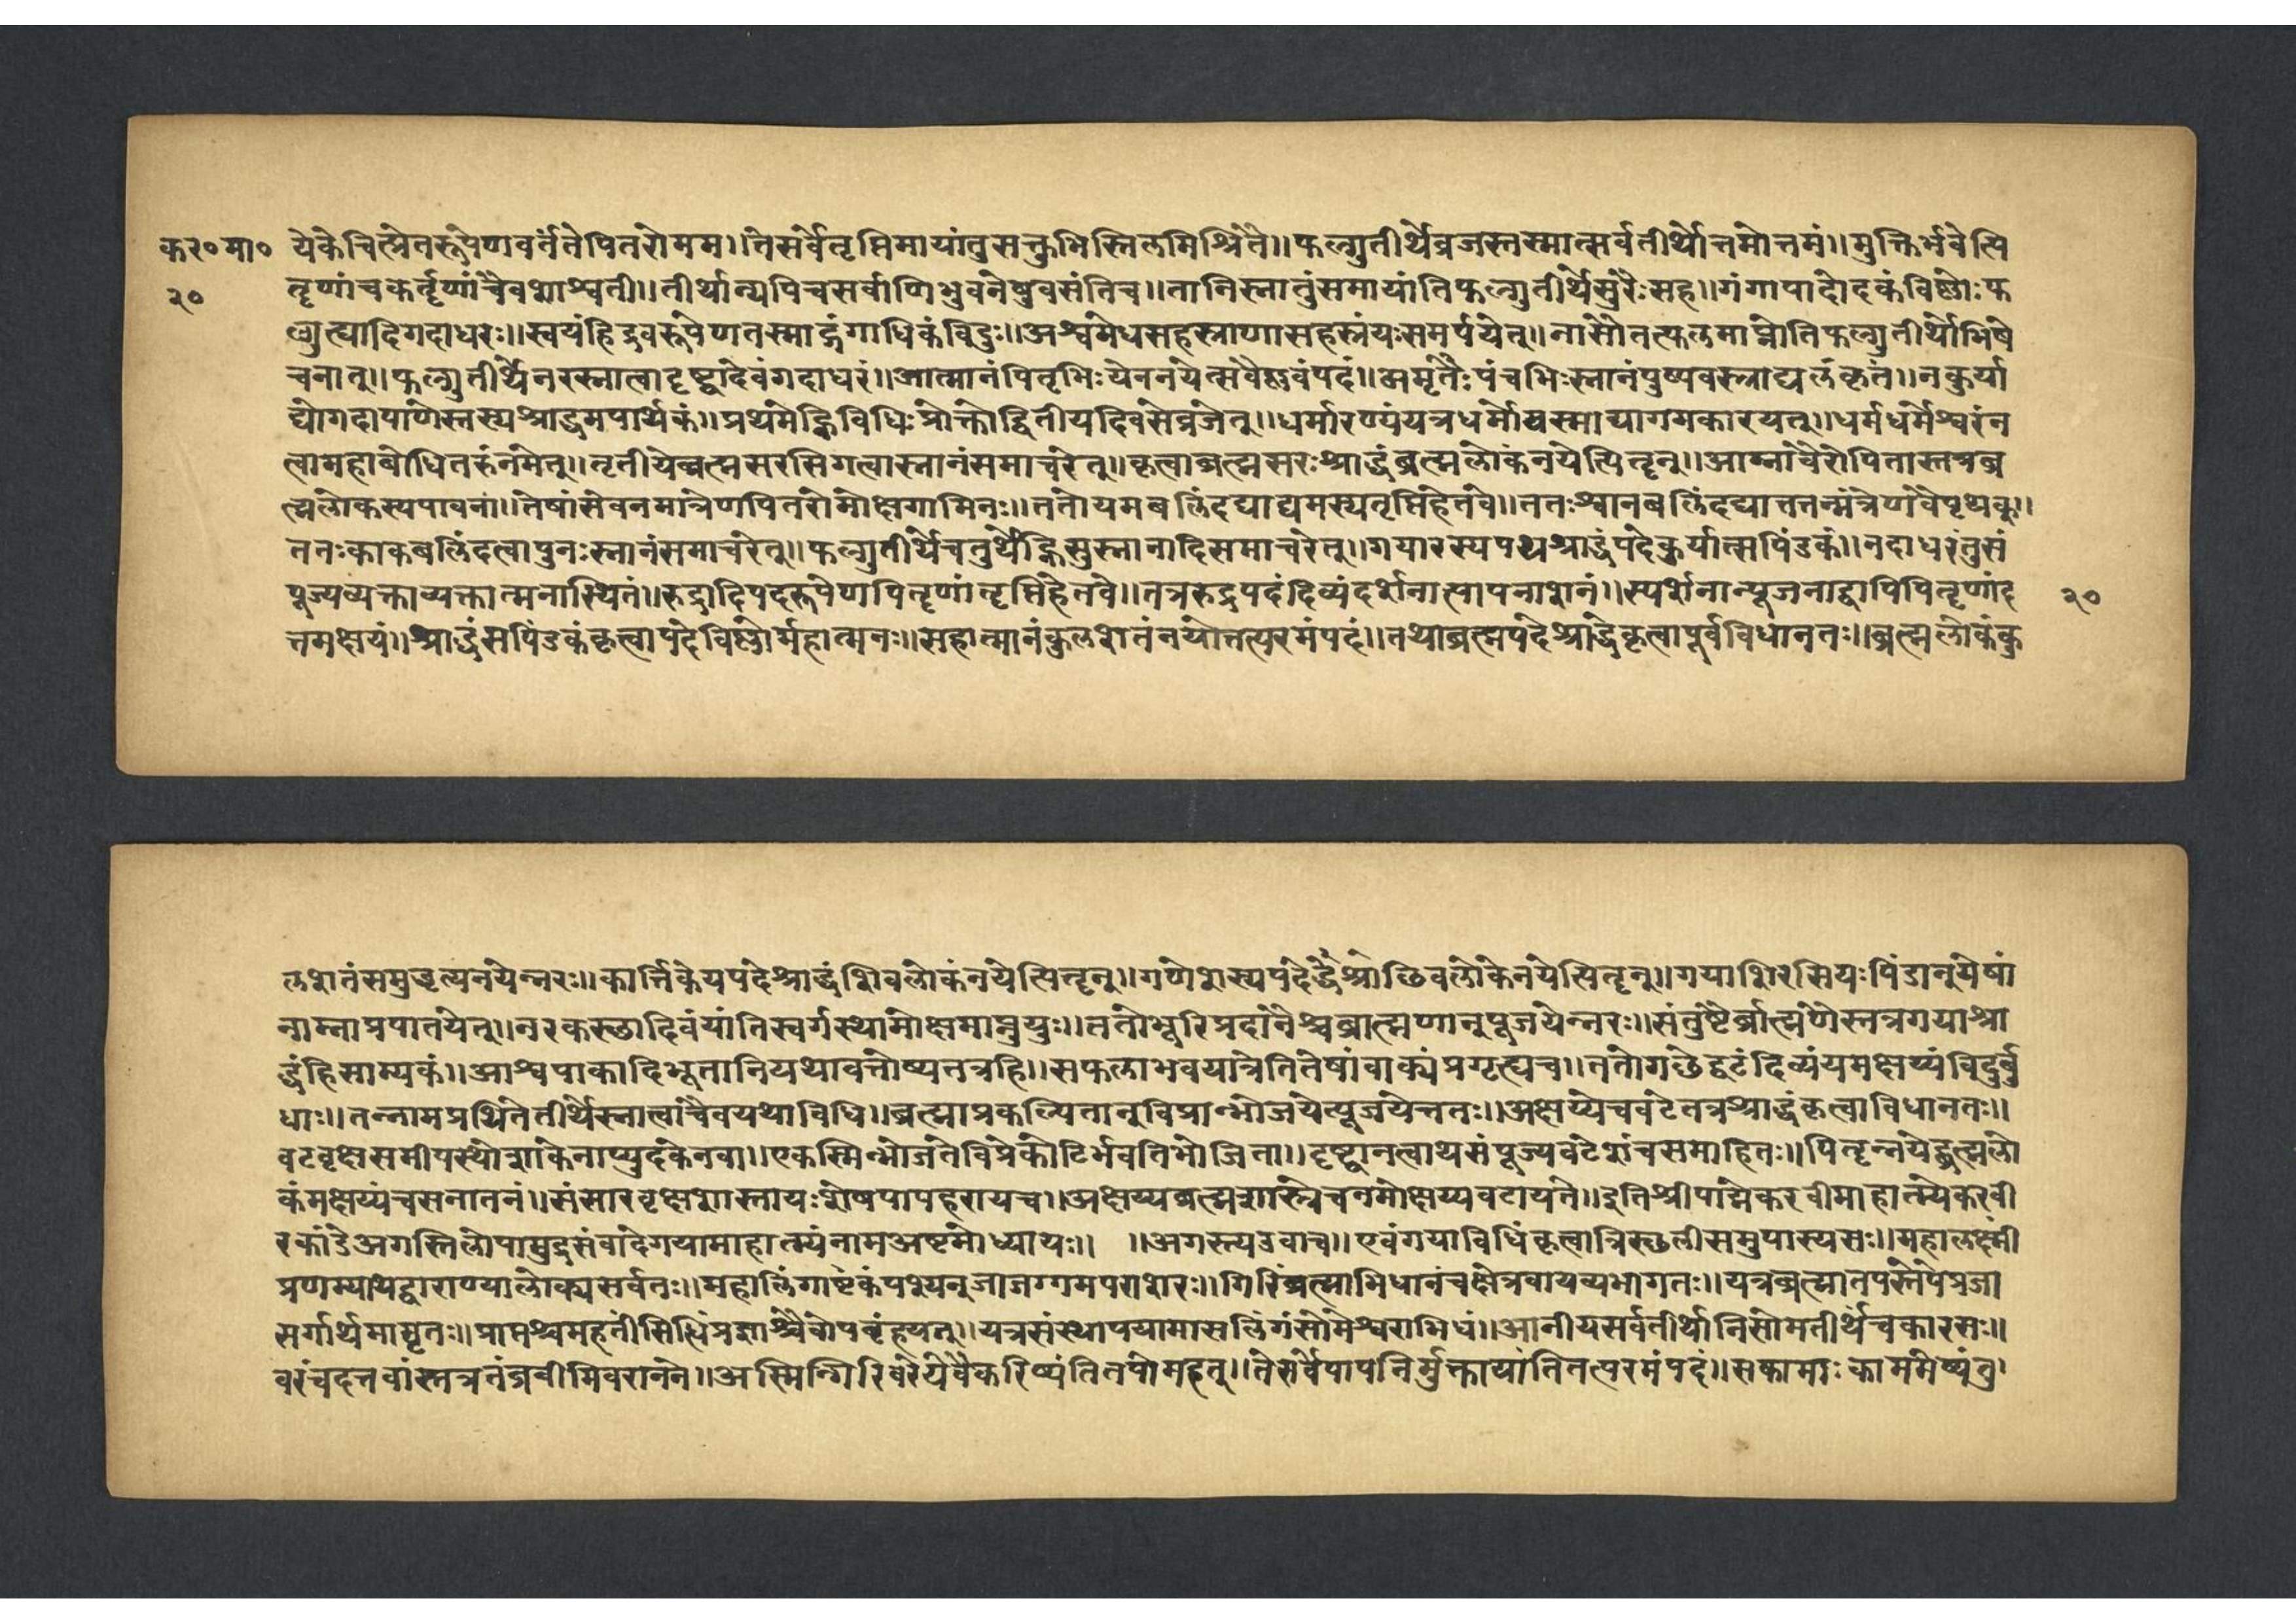 कर०मा०
२०
येकेचित्प्रेतरूपेणवर्तंतेपितरोमम।।तेसर्वेतृप्तिमायांतुसक्तुभिस्तिलमिश्रितैः।।फल्गुतीर्थेव्रजस्तस्मात्सर्वतीर्थोत्तमोत्तमं।।मुक्तिर्भवेत्पि
तॄणांचकर्तॄणांचैवशाश्वती।।तीर्थान्यपिचसर्वाणिभुवनेषुवसंतिच।।तानिस्नातुंसमायांतिफल्गुतीर्थेसुरैःसह।।गंगापादोदकंविष्णोःफ
ल्गुत्ह्यादिगदाधरः।।स्वयंहिद्रवरूपेणतस्माद्गंगाधिकंविदुः।।अश्वमेधसहस्राणासहस्रंयःसमर्पयेत्।।नासौतत्फलमाप्नोतिफल्गुतीर्थोभिषे
चनात्।।फल्गुतीर्थेनरस्नात्वादृष्ट्वादेवंगदाधरं।।आत्मानंपितृभिःयेननयेत्सवैष्णवंपदं।।अमृतैःपंचभिःस्नानंपुष्पवस्त्राद्यलंकृतं।।नकुर्या
द्योगदापाणेस्तस्यश्राद्धमपार्थकं।।प्रथमेह्निविधिःप्रोक्तोद्वितीयदिवसेव्रजेत्।।धर्मारण्यंयत्रधर्मोयस्माद्यागमकारयत्।।धर्मधर्मेश्वरंन
त्वामहाबोधितरुंनमेत्।।तृतीयेब्रह्मसरसिगत्वास्नानंसमाचरेत्।।कृत्वाब्रह्मसरःश्राद्धंब्रह्मलोकंनयेत्पितॄन्।।आम्नावैरोपितास्तत्रब्र
ह्मलोकस्यपावना।।तेषांसेवनमात्रेणपितरोमोक्षगामिनः।।ततोयमबलिंदद्याद्यमस्यतृप्तिहेतवे।।ततःश्वानबलिंदद्यात्ततन्मंत्रेणवैपृथक्।।
ततःकाकबलिंदत्वापुनःस्नानंसमाचरेत्।।फल्गुतीर्थेचतुर्थेह्निसुस्नानादिसमाचरेत्।।गयारस्यपथश्राद्धंपदेकुर्यात्सपिंडकं।।नदाधरंतुसं
पूज्यव्यक्ताव्यक्तात्मनास्थितं।।रुद्रादिपदरूपेणपितॄणांतृप्तिहेतवे।।तत्ररुद्रपदंदिव्यंदर्शनात्पापनाशनं।।स्पर्शनान्पूजनाद्वापिपितॄणांद
२०
त्तमक्षयं।।श्राद्धंसपिंडकंकृत्वापदेविष्णोर्महात्मनः।।सहात्मानंकुलशतंनयेत्तत्परमंपदं।।तथाब्रह्मपदेश्राद्धंकृत्वापूर्वविधानतः।।ब्रह्मलोकंकु
लशतंसमुद्धृत्यनयेन्नरः।।कार्त्तिकेयपदेश्राद्धंशिवलोकंनयेत्पितॄन्।।गणेशस्यपदेद्धंश्राछिवलोकेनयेत्पितॄन्।।गयाशिरसियःपिंडान्येषां
नाम्नाप्रपातयेत्।।नरकस्छादिवंयांतिस्वर्गस्थामोक्षमाप्नुयुः।।ततोभूरिप्रदानैश्चब्राह्मणान्पूजयेन्नरः।।संतुष्टैर्ब्राह्मणेस्तत्रगयाश्रा
द्धंहिसाम्यकं।।आश्वपाकादिभूतानियथावत्तोष्यतत्रहि।।सफलाभवयात्रेतितेषांवाक्यंप्रगृह्यच।।ततोगछेद्वटंदिव्यंयमक्षय्यंविदुर्बु
धाः।।तन्नामप्रथितेतीर्थेस्नात्वाचैवयथाविधि।।ब्रह्माप्रकल्पितान्विप्रान्भोजयेत्पूजयेत्ततः।।अक्षय्येचवटेतत्रश्राद्धंकृत्वाविधानतः।।
वटवृक्षसमीपस्थोशाकेनाप्युदकेनवा।।एकस्मिन्भोजतेविप्रेकोटिर्भवतिभोजिता।।दृष्ट्वानत्वाथसंपूज्यवटेशंचसमाहितः।।पितॄन्नयेद्ब्रह्मलो
कंमक्षय्यंचसनातनं।।संसारवृक्षशस्त्रायःशेषपापहरायच।।अक्षय्यब्रह्मशास्त्रेचनमोक्षय्यवटायते।।इतिश्रीपाद्मेकरवीमाहात्म्येकरवी
रकांडेअगस्तिलोपामुद्रसंवादेगयामाहात्म्यंनामअष्टमोध्यायः।। ।।अगस्त्यउवाच।।एवंगयाविधिंकृत्वात्रिस्छलीसमुपास्यसः।।महालक्ष्मीं
प्रणम्याथद्वाराण्यालोक्यसर्वतः।।महालिंगाष्टकंपश्येन्नुजाजग्गमपराशरः।।गिरिंब्रह्माभिधानंचक्षेत्रवायव्यभागतः।।यत्रब्रह्मातपस्तेपेप्रजा
सर्गार्थमामृतः।।प्राप्तश्चमहतींसिद्धिंप्रजाश्चैवोपबृंहयत्।।यत्रसंस्थापयामासलिंगंसोमेश्वराभिधं।।आनीयसर्वतीर्थानिसोमतीर्थंचकारसः।।
वरंचदत्तवांस्तत्रतंब्रवीमिवरानने।।अस्मिन्गिरिवरेयेवैकरिष्यंतितपोमहत्।।तेसर्वेपापनिर्मुक्तायांतितत्परमंपदं।।सकामाःकाममेष्यंतु